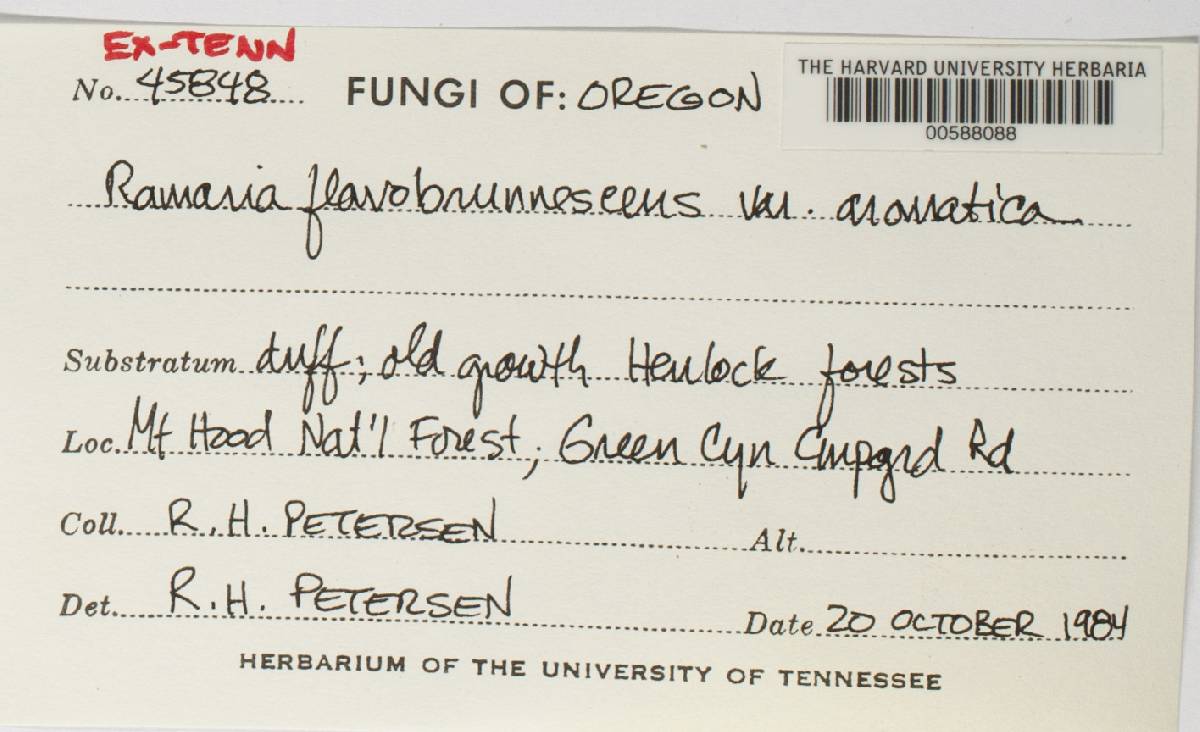 EX-TENN
No. 45848 FUNGI OF: OREGON
THE HARVARD UNIVERSITY HERBARIA
00588088
Ramaria flavobrunnescens var. aromatica
Substratum duff; old growth Hemlock forests
Loc. Mt Hood Nat'l Forest; Green Cyn Cmpgrd Rd
Coll. R.H. PETERSEN Alt.
Det. R.H. PETERSEN Date 20 OCTOBER 1984
HERBARIUM OF THE UNIVERSITY OF TENNESSEE